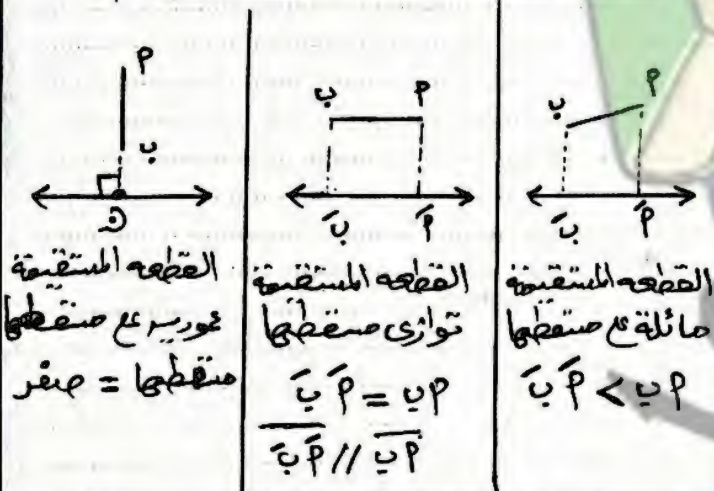 أ
ب
أَ
بَ
القطعه المستقيمة
مائلة ع مسقطها
أب > أَبَ
أ
ب
أَ
بَ
القطعه المستقيمة
توازى مسقطها
أب = أَبَ
أب // أَبَ
أ
ب
القطعه المستقيمة
عموديه ع مسقطها
مسقطها = صفر